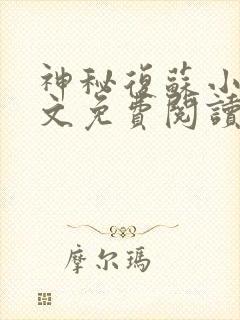 神秘復蘇小
文免費閱讀
摩尔瑪